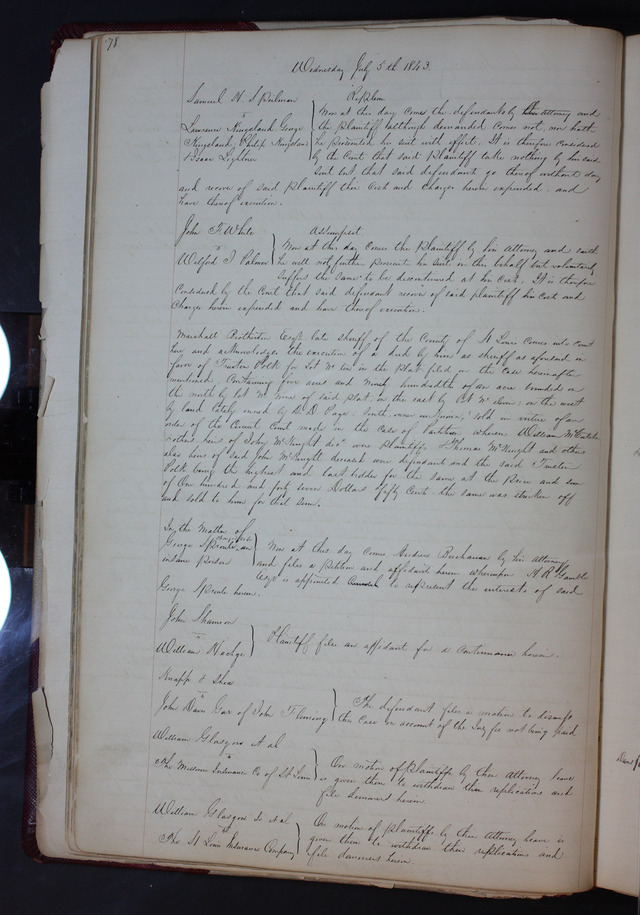 78
Wednesday July 5th 1843.
Samuel H. Spilman Replevin
vs
Lawrence Kingsland George
Kingsland, Philip Kingsland
& Isaac Lightner
Now at this day comes the defendants by their attorney and
the Plaintiff although demanded comes not, nor hath
he prosecuted his suit with effect. It is therefore considered
by the Court that said Plaintiff take nothing by his said
suit but that said defendants go thereof without day
and recover of said Plaintiff their Costs and Charges herein expended and
have thereof execution.
John F. White Assumpsit
vs
Wilford I Palmer
Now at this day comes the Plaintiff by his Attorney and saith
he will not further Prosecute his suit in this behalf but voluntarily
suffers the same to be discontinued at his Cost. It is therefore
Considered by the Court that said defendant recover of said plaintiff his Costs and
Charges herein expended and have thereof execution.
Marshall Brotherton Esqr late sheriff of the County of St Louis comes into court
here and acknowledges the execution of a deed by him as sheriff as aforesaid in
favor of Trusten Polk for Lot No ten in the Plat filed in the case hereinafter
mentioned, Containing five acres and hundredths of an acre bounded on
the north by lot No nine of said plat, on the east by lot No eleven, on the west
by land lately owned by D. D. Page, sold in virtue of an
order of the Circuit Court made in the Case of Partition wherein William
& others heirs of John McKnight decd were plaintiffs Thomas McKnight and others
also heirs of said John McKnight deceased were defendant and the said Trusten
Polk being the highest and last bidder for the same at the Price and sum
of One hundred and forty seven Dollars & fifty Cents the same was stricken off
and sold to him for that sum.
In the Matter of
George Sproule, an
insane person
Now at this day comes Andrew Buchanan by his Attorney
and files a Petition and affidavit herein whereupon H R Gamble
Esqr is appointed to represent the interests of said
George Sproule herein.
John Shannon
vs
William
Plaintiff files an affidavit for a Continuance herein.
Knapp & Shea
vs
John Dain Gar of John Fleming
The defendant files a motion to dismiss
this Case on account of the Jury fee not being paid
William Glasgow et al
vs
The Missouri Insurance Co of St Louis
On motion of Plaintiffs by their Attorney leave
is given them to withdraw their replications and
file demurrers herein.
William Glasgow Jr et al
vs
The St Louis Insurance Company
On motion of Plaintiffs by their Attorney leave is
given them to withdraw their replications and
file demurrers herein.